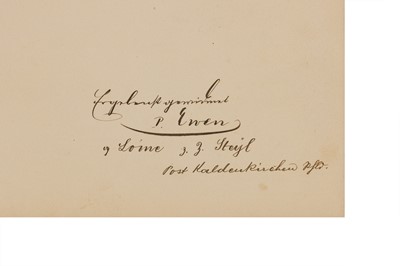 Ergebenst gewidmet
P. Ewen
z. Z. Steyl
Post Kaldenkirchen